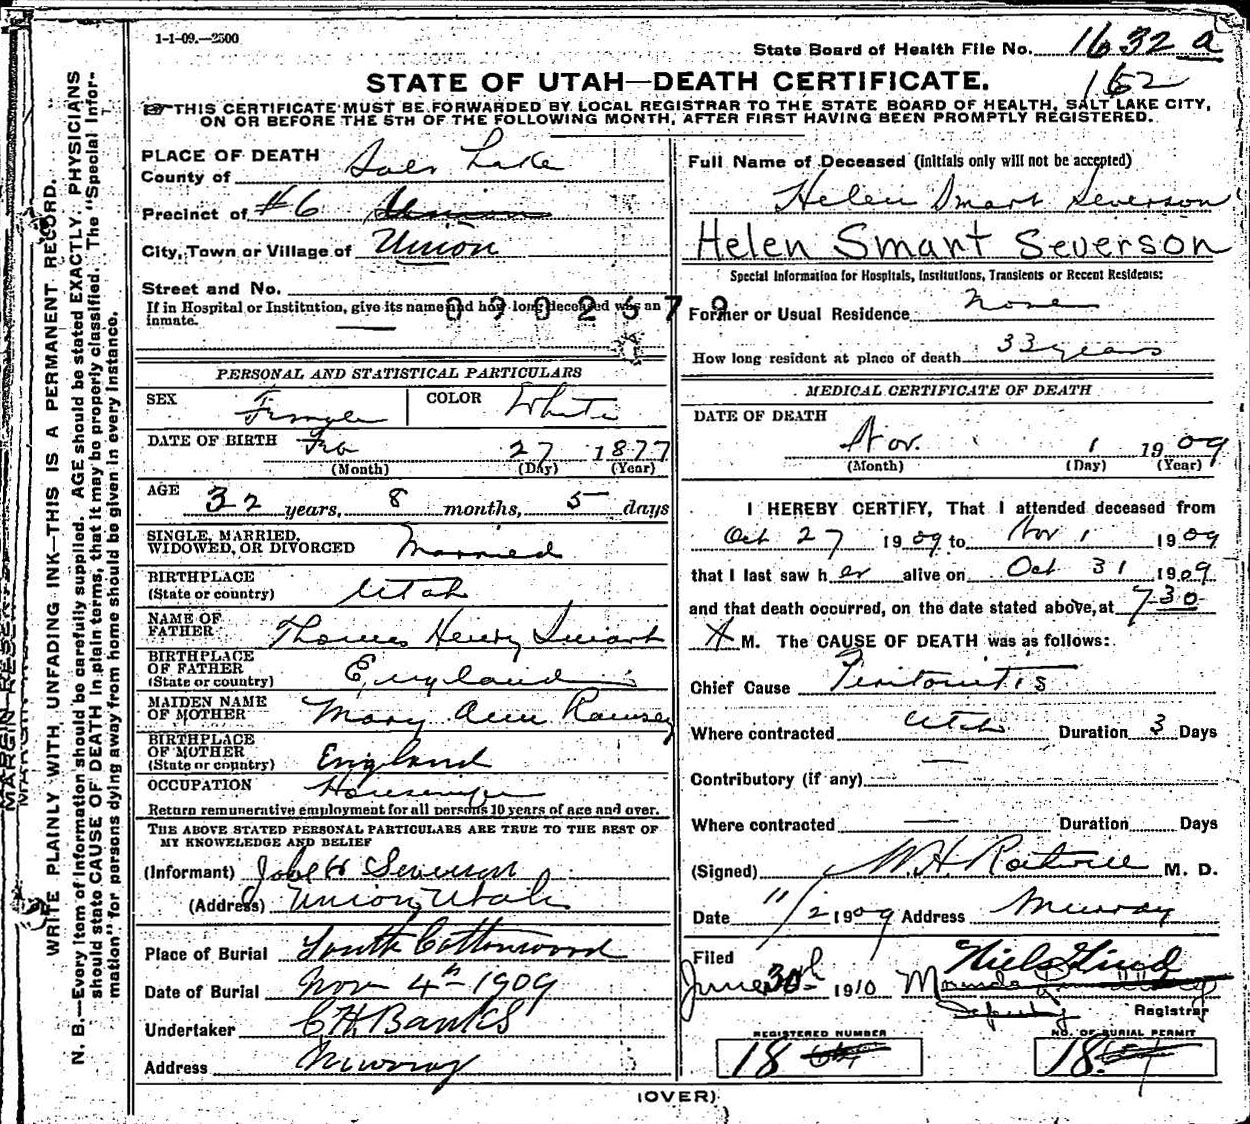 1-1-09.—2500
State Board of Health File No. 1632 a
162
STATE OF UTAH—DEATH CERTIFICATE.
THIS CERTIFICATE MUST BE FORWARDED BY LOCAL REGISTRAR TO THE STATE BOARD OF HEALTH, SALT LAKE CITY,
ON OR BEFORE THE 5TH OF THE FOLLOWING MONTH, AFTER FIRST HAVING BEEN PROMPTLY REGISTERED.
MARGIN RESER
WRITE PLAINLY WITH UNFADING INK—THIS IS A PERMANENT RECORD.
N. B.—Every item of information should be carefully supplied. AGE should be stated EXACTLY. PHYSICIANS
should state CAUSE OF DEATH in plain terms, that it may be properly classified. The "Special Infor-
mation" for persons dying away from home should be given in every instance.
PLACE OF DEATH
County of Salt Lake
Precinct of #6 Union
City, Town or Village of Union
Street and No.
If in Hospital or Institution, give its name and how long deceased was an
inmate. —
0902579
PERSONAL AND STATISTICAL PARTICULARS
SEX Female COLOR White
DATE OF BIRTH Feb 27 1877
(Month) (Day) (Year)
AGE 32 years, 8 months, 5 days
SINGLE, MARRIED,
WIDOWED, OR DIVORCED Married
BIRTHPLACE
(State or country) Utah
NAME OF
FATHER Thomas Henry Smart
BIRTHPLACE
OF FATHER
(State or country) England
MAIDEN NAME
OF MOTHER Mary Ann Ramsey
BIRTHPLACE
OF MOTHER
(State or country) England
OCCUPATION Housewife
Return remunerative employment for all persons 10 years of age and over.
THE ABOVE STATED PERSONAL PARTICULARS ARE TRUE TO THE BEST OF
MY KNOWLEDGE AND BELIEF
(Informant) Severson
(Address) Union, Utah
Place of Burial South Cottonwood
Date of Burial Nov 4th 1909
Undertaker C H. Banks
Address Murray
Full Name of Deceased (initials only will not be accepted)
Helen Smart Severson
Helen Smart Severson
Special Information for Hospitals, Institutions, Transients or Recent Residents:
Former or Usual Residence none
How long resident at place of death 33 years
MEDICAL CERTIFICATE OF DEATH
DATE OF DEATH
Nov. 1 1909
(Month) (Day) (Year)
I HEREBY CERTIFY, That I attended deceased from
Oct 27 1909 to Nov 1 1909
that I last saw her alive on Oct 31 1909
and that death occurred, on the date stated above, at 7-30
A M. The CAUSE OF DEATH was as follows:
Chief Cause Peritonitis
Where contracted Utah Duration 3 Days
Contributory (if any) —
Where contracted — Duration Days
(Signed) W. H. M. D.
Date 11/2 1909 Address Murray
Filed
June 30th 1910
Deputy Registrar
REGISTERED NUMBER
18
NO. OF BURIAL PERMIT
18
(OVER)